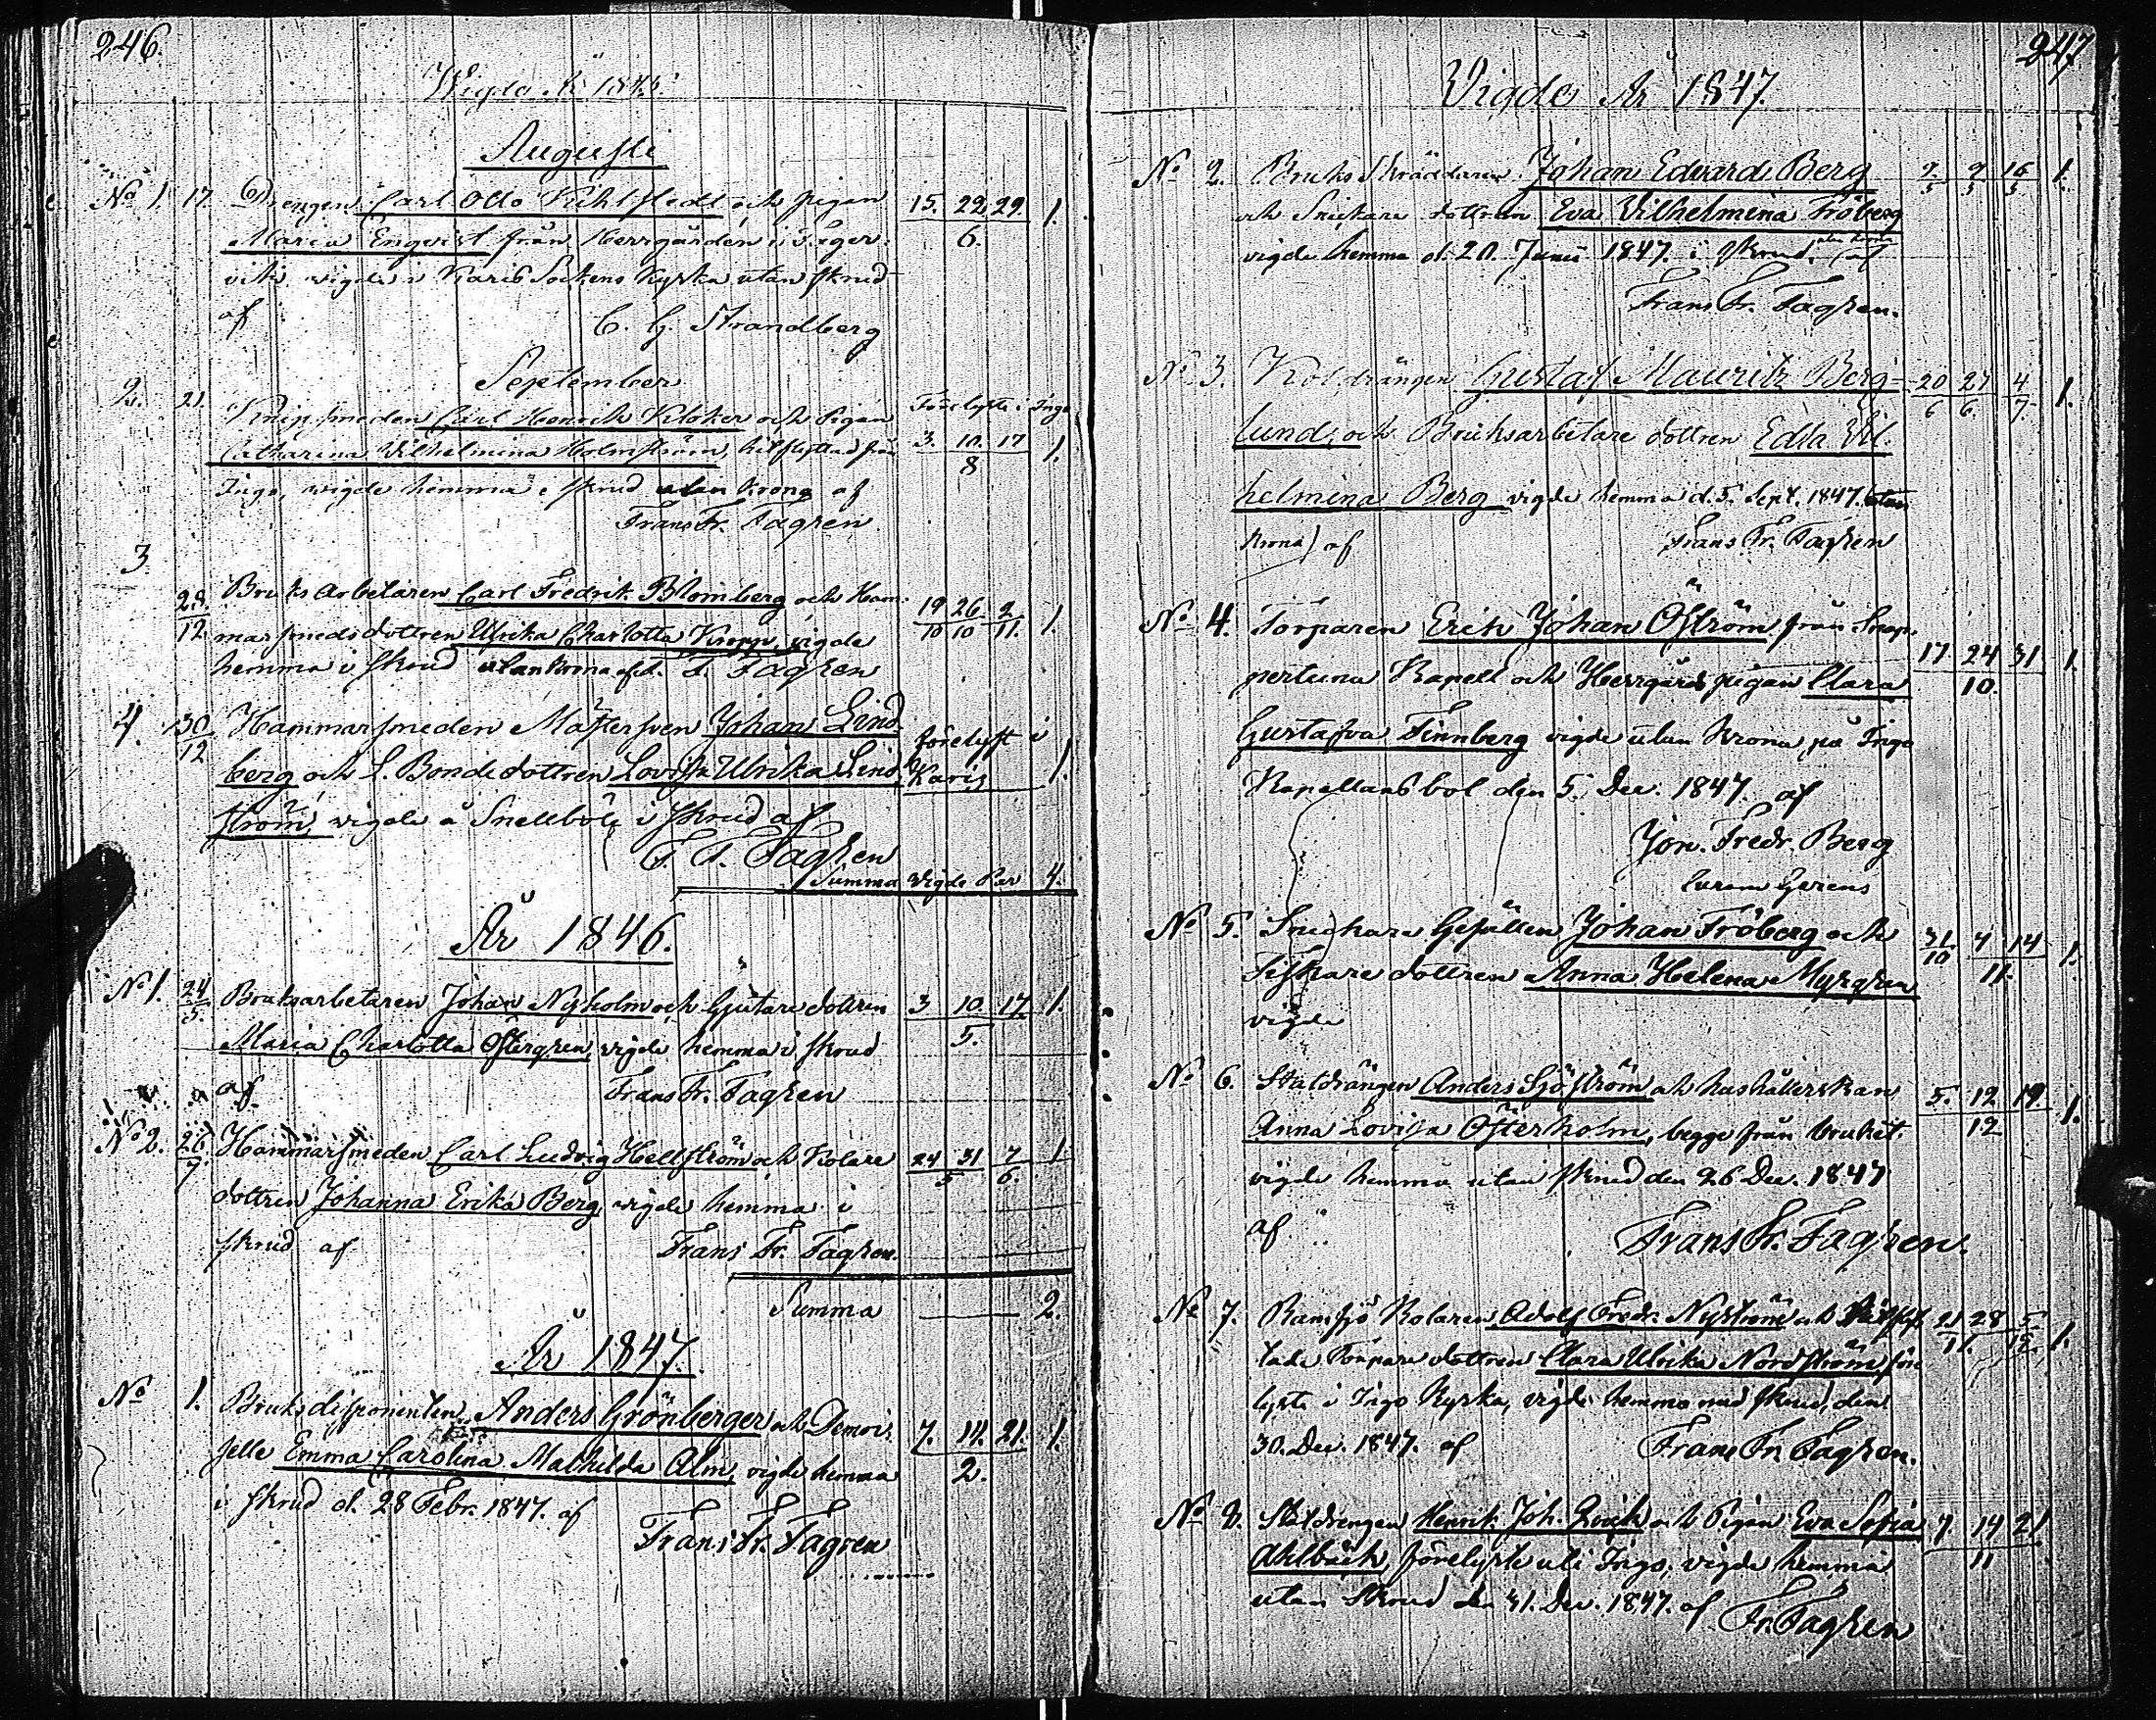 246.
Wigde År 1845.
Augusti
No 1. 17. Drengen Carl Otto Kihlstedt och pigan 15. 22. 29. 1.
Maria Enqvist från Herrgården i Fager- 6.
vik wigde i Karis Sockens Kyrka utan skrud
af C. G. Strandberg
September
2. 21. Knipsmeden Carl Henrik Klöker och Pigan Förelyste i Ingo
Catharina Wilhelmina Holmström, hitflyttad från 3. 10. 17 1.
Ingo, wigde hemma i skrud utan krona af 8
Frans Fr. Fagren
3
28. Bruks Arbetaren Carl Fredrik Blomberg och Ham- 19 26 2 1.
12. marsmedsdottren Ulrika Charlotta Kropp, vigde 10 10 11.
hemma i skrud utan krona af F. F. Fagren
4. 30 Hammarsmeden Mästersven Johan Lind- förelyst i
12 berg och L. Bondedottren Lovisa Ulrika Lind- Karis 1.
ström, vigde å Snellböle i skrud af
F. F. Fagren
Summa Vigde Par 4.
År 1846.
No 1. 24 Bruksarbetaren Johan Nyholm och Gjutare dottren 3 10. 17. 1.
5. Maria Charlotta Östergren, vigde hemma i skrud 5.
af Frans Fr. Fagren
No 2. 26 Hammarsmeden Carl Ludvig Hellström och Kolare 24 31 7 1
7 dottren Johanna Erika Berg vigde hemma i 5 6.
skrud af Frans Fr. Fagren.
Summa 2.
År 1847.
No 1. Bruksdisponenten Anders Grönberger och Demoi- 7. 14. 21. 1.
selle Emma Carolina Mathilda Alm, vigde hemma 2.
i skrud d. 28 Febr. 1847. af
Frans Fr. Fagren
247
Vigde År 1847.
No 2. Bruks Skräddaren Johan Edvard Berg 2 9 16 1.
och Snickare dottren Eva Vilhelmina Fröberg 5 5 5
vigde hemma d. 20. Junii 1847. i skrud, utan krona af
Frans Fr. Fagren.
No 3. Koldrängen Gustaf Mauritz Berg- 20 27 4 1.
lund, och Bruksarbetare dottren Edla Vil- 6 6. 7.
helmina Berg vigde hemma d. 5. Sept. 1847. (utan
krona) af Frans Fr. Fagren
No 4. Torparen Erik Johan Öström från Snap-
pertuna Kapell och Herrgårds pigan Clara 17 24 31 1.
Gustafva Finnberg vigde utan Krona på Ingo 10.
Kapellansbol den 5. Dec. 1847. af
Jon. Fredr. Berg
Curam Gerens
No 5. Snickare Gesällen Johan Fröberg och 31 7 14 1.
Fiskare dottren Anna Helena Myrgren 10 11.
vigde
No 6. Staldrängen Anders Sjöström och hushållerskan 5. 12 19 1.
Anna Lovisa Österholm, begge från bruket. 12
vigde hemma utan skrud den 26 Dec. 1847
af Frans Fr. Fagren.
No 7. Ramsjö Kolaren Adolf Fredr. Nyström och 21 28 5 1.
Torpare dottren Clara Ulrika Nordström före 11. 12.
lyste i Ingo Kyrka, vigde hemma med skrud, den
30. Dec. 1847. af Frans Fr. Fagren.
No 8. Staldrengen Henrik Joh. Qvick och Pigan Eva Sofia 7 14 21
Ahlbäck, förelyste uti Ingo, vigde hemma 11
utan Skrud den 31. Dec. 1847. af Fr. Fagren